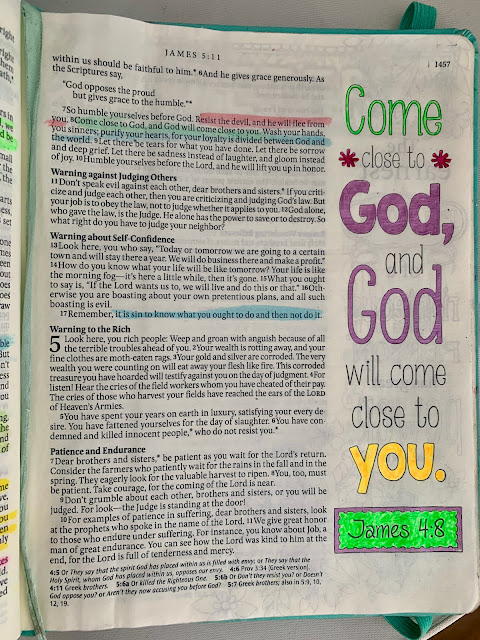 JAMES 5:11
1457
within us should be faithful to him.* 6And he gives grace generously. As
the Scriptures say,
"God opposes the proud
but gives grace to the humble."*
7So humble yourselves before God. Resist the devil, and he will flee from
you. 8Come close to God, and God will come close to you. Wash your hands,
you sinners; purify your hearts, for your loyalty is divided between God and
the world. 9Let there be tears for what you have done. Let there be sorrow
and deep grief. Let there be sadness instead of laughter, and gloom instead
of joy. 10Humble yourselves before the Lord, and he will lift you up in honor.
Warning against Judging Others
11Don't speak evil against each other, dear brothers and sisters.* If you criti-
cize and judge each other, then you are criticizing and judging God's law. But
your job is to obey the law, not to judge whether it applies to you. 12God alone,
who gave the law, is the Judge. He alone has the power to save or to destroy. So
what right do you have to judge your neighbor?
Warning about Self-Confidence
13Look here, you who say, "Today or tomorrow we are going to a certain
town and will stay there a year. We will do business there and make a profit."
14How do you know what your life will be like tomorrow? Your life is like
the morning fog—it's here a little while, then it's gone. 15What you ought
to say is, "If the Lord wants us to, we will live and do this or that." 16Oth-
erwise you are boasting about your own pretentious plans, and all such
boasting is evil.
17Remember, it is sin to know what you ought to do and then not do it.
Warning to the Rich
5 Look here, you rich people: Weep and groan with anguish because of all
the terrible troubles ahead of you. 2Your wealth is rotting away, and your
fine clothes are moth-eaten rags. 3Your gold and silver are corroded. The very
wealth you were counting on will eat away your flesh like fire. This corroded
treasure you have hoarded will testify against you on the day of judgment. 4For
listen! Hear the cries of the field workers whom you have cheated of their pay.
The cries of those who harvest your fields have reached the ears of the LORD
of Heaven's Armies.
5You have spent your years on earth in luxury, satisfying your every de-
sire. You have fattened yourselves for the day of slaughter. 6You have con-
demned and killed innocent people,* who do not resist you.*
Patience and Endurance
7Dear brothers and sisters,* be patient as you wait for the Lord's return.
Consider the farmers who patiently wait for the rains in the fall and in the
spring. They eagerly look for the valuable harvest to ripen. 8You, too, must
be patient. Take courage, for the coming of the Lord is near.
9Don't grumble about each other, brothers and sisters, or you will be
judged. For look—the Judge is standing at the door!
10For examples of patience in suffering, dear brothers and sisters, look
at the prophets who spoke in the name of the Lord. 11We give great honor
to those who endure under suffering. For instance, you know about Job, a
man of great endurance. You can see how the Lord was kind to him at the
end, for the Lord is full of tenderness and mercy.
4:5 Or They say that the spirit God has placed within us is filled with envy; or They say that the
Holy Spirit, whom God has placed within us, opposes our envy. 4:6 Prov 3:34 (Greek version).
4:11 Greek brothers. 5:6a Or Killed the Righteous One. 5:6b Or Don't they resist you? or Doesn't
God oppose you? or Aren't they now accusing you before God? 5:7 Greek brothers; also in 5:9, 10,
12, 19.
Come
close to
God,
and
God
will come
close to
you.
James 4:8